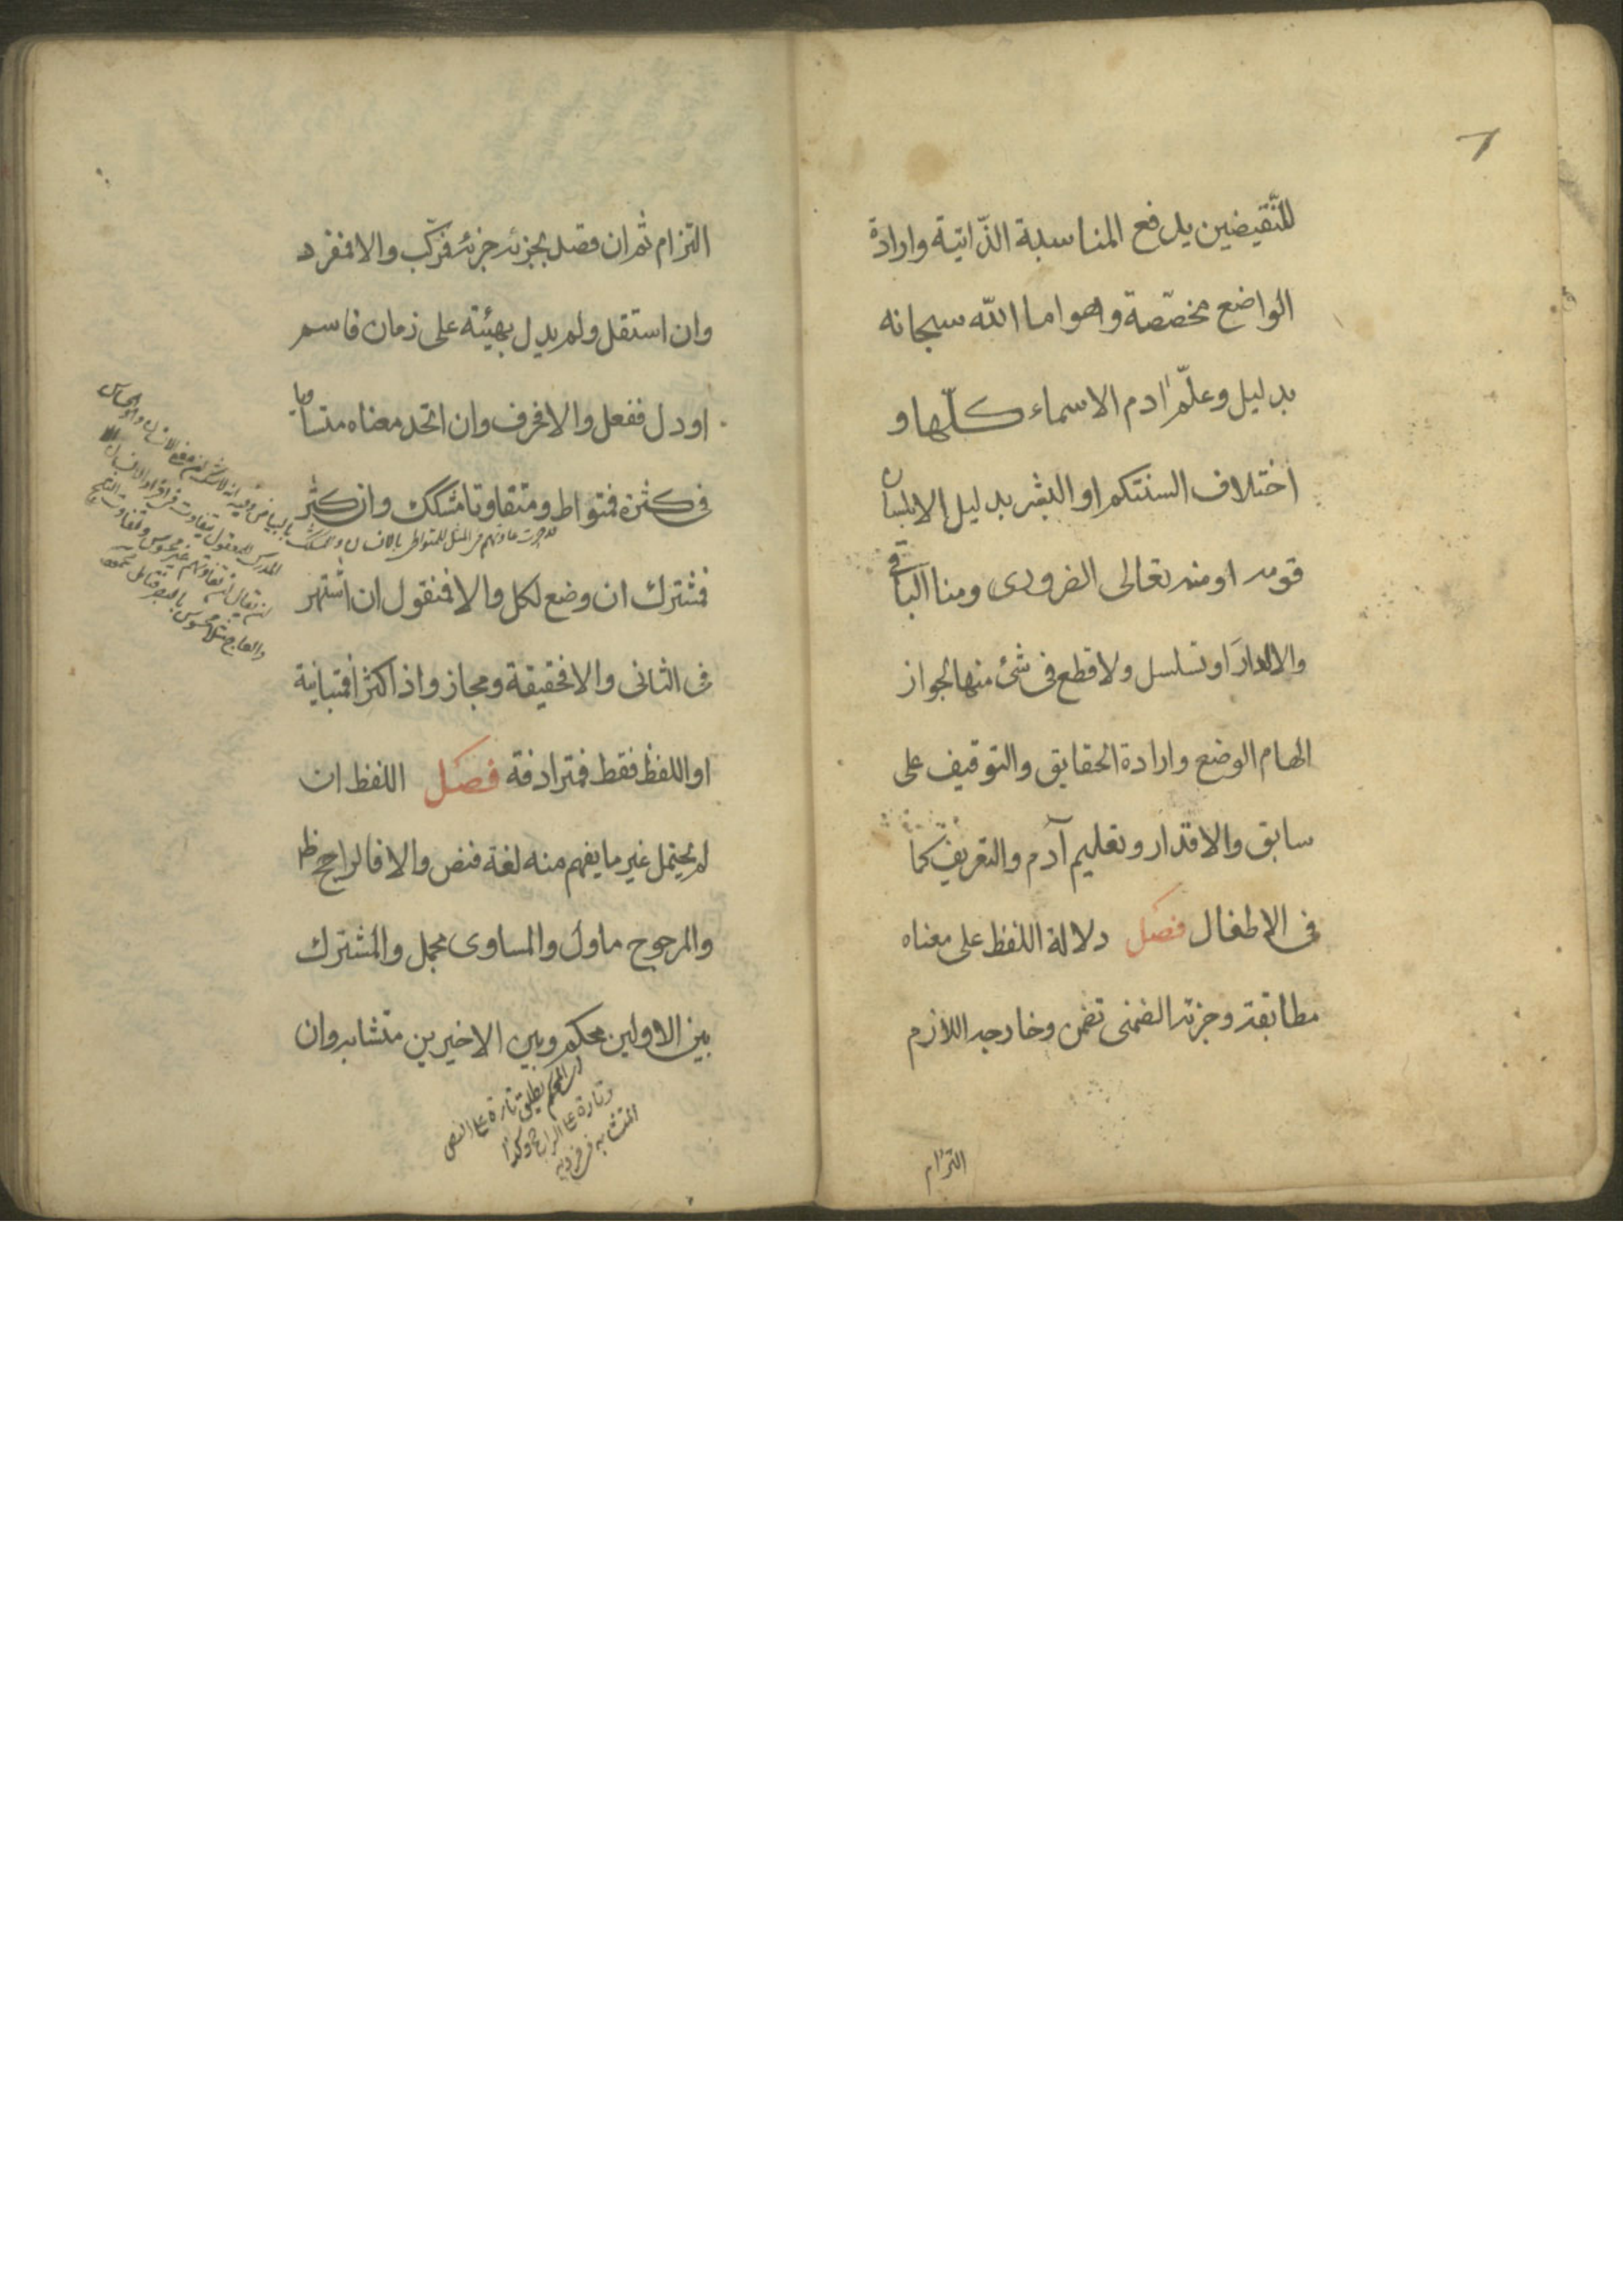 للنّقيضين يدفع المناسبة الذّاتية وارادة
الواضع مخصّصة وهو اما الله سبحانه
بدليل وعلّم ادم الاسماء كلّها و
اختلاف السنتكم او البشر بدليل الا بلسان
قومه او منه تعالى الضرورى ومنا الباقى
والا لدار او تسلسل ولا قطع فى شئ منها لجواز
الهام الوضع وارادة الحقايق والتوقيف على
سابق والاقدار وتعليم آدم والتعريف كما
فى الاطفال فصل دلالة اللفظ على معناه
مطابقة وجزئه الضمنى تضمن وخارجه اللازم
التزام
التزام ثم ان قصد بجزئه جزئه فركّب والا فمفرد
وان استقل ولم يدل بهيئته على زمان فاسم
او دل ففعل والا فحرف وان اتحد معناه متساويا
فى كثرة فمتواط ومتفاوتا مشكك وان كثر
فمشترك ان وضع لكل والا فمنقول ان اشتهر
فى الثانى والا فحقيقة ومجاز واذا كثرا فمتباينة
او اللفظ فقط فمترادفة فصل اللفظ ان
لم يحتمل غير ما يفهم منه لغة فنص والا فالراجح ظ
والمرجوح ماول والمساوى مجمل والمشترك
بين الاولين محكم وبين الاخيرين متشابه وان
المحكم يطلق تارة على النص
وتارة على الراجح وكذا
المتشابه فى فرديه